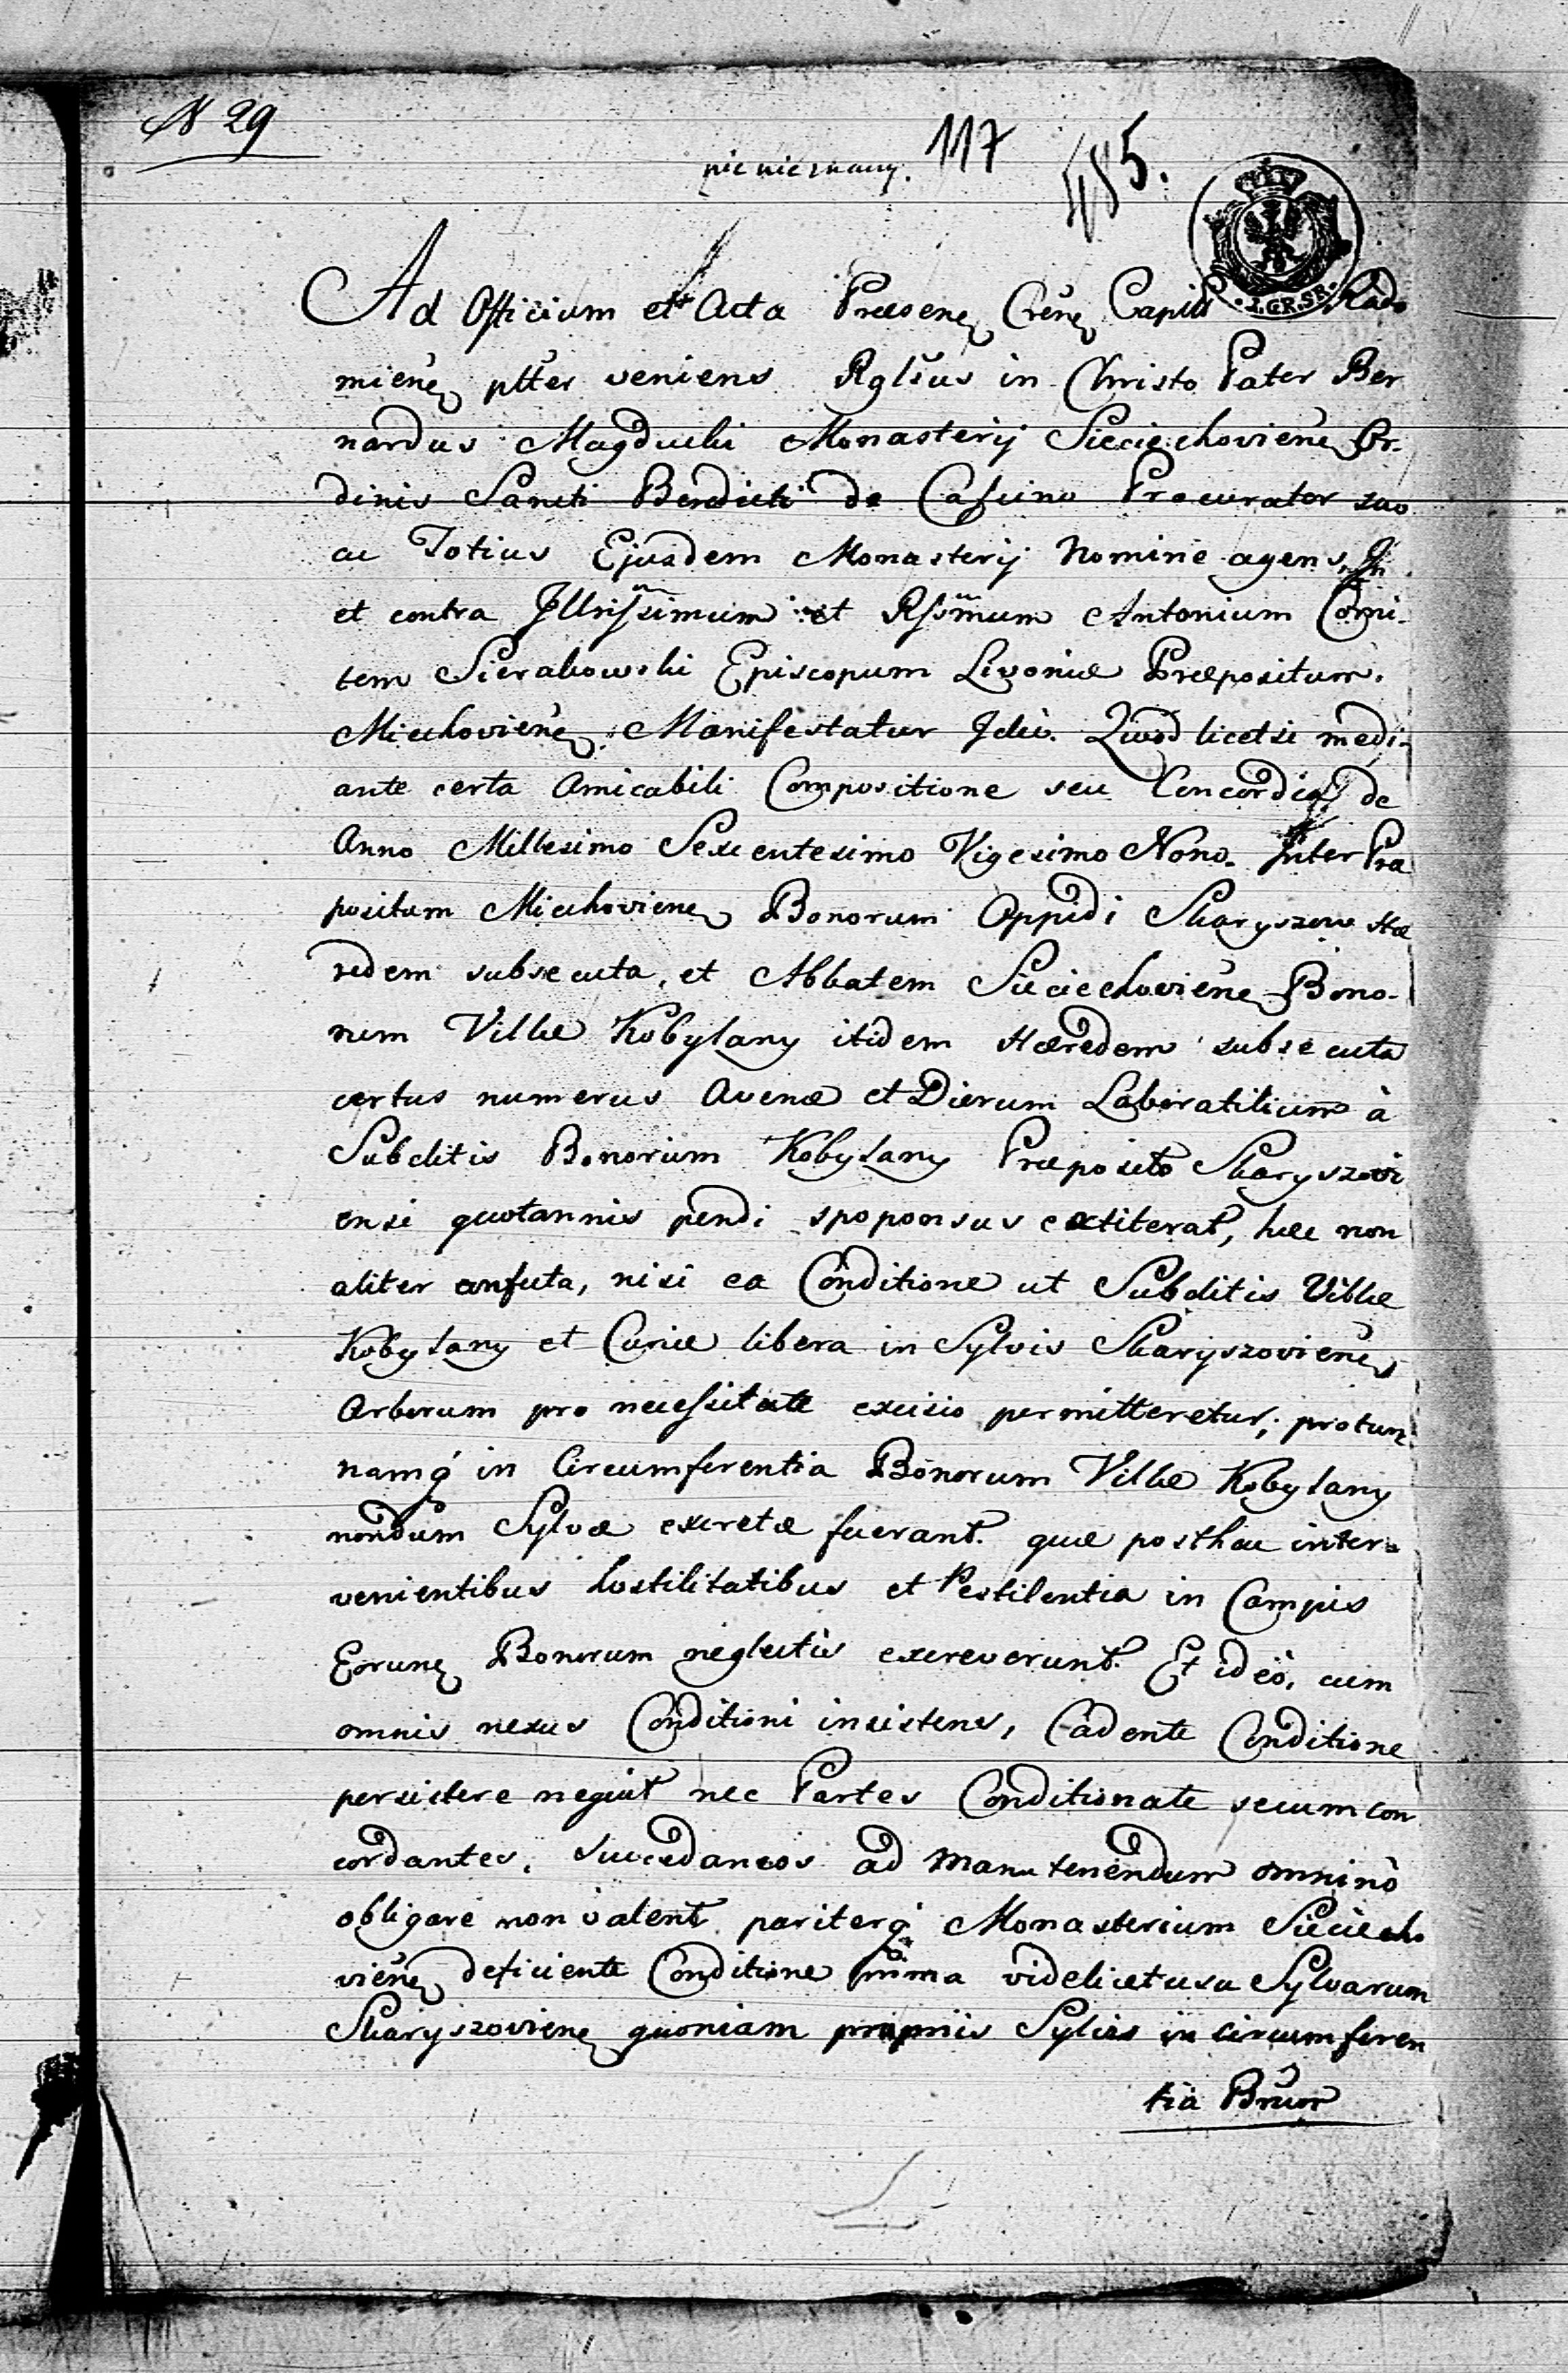 N 29
nic nieznany. 117
485.
J.GR.SR.
Ad Officium et Acta Præsenę Crenę Capitł Rado
mienę ptter veniens Rglsus in Christo Pater Ber
nardus Magducki Monasterij Sieciechovienę Or-
dinis Sancti Benedicti de Cassino Procurator suo
ac Totius Ejusdem Monasterij Nomine agens, In
et contra Jllrissimum et Rssmum Antonium Comi-
tem Sierakowski Episcopum Livoniæ Præpositum
Miechovienę Manifestatur Ideo. Quod licetsi medi-
ante certa Amicabili Compositione seu Concordia de
Anno Millesimo Sexcentesimo Vigesimo Nono. Inter Præ
positum Miechovienę Bonorum Oppidi Skaryszow Hæ
redem subsecuta, et Abbatem Sieciechovienę Bono-
rum Villæ Kobylany itidem Hæredem subsecuta
certus numerus Avenæ et Dierum Laboratilium à
Subditis Bonorum Kobylany Præposito Skaryszovi
ensi quotannis pendi spoponsus extiterat, hæc non
aliter confuta, nisi ea Conditione ut Subditis Villæ
Kobylany et Curiæ libera in Sylvis Skaryszovienę
Arborum pro necessitate excisio permitteretur; protunc
namq́ in Circumferentia Bonorum Villæ Kobylany
nondum Sylvæ excretæ fuerant. quæ posthac inter-
venientibus hostilitatibus et Pestilentia in Campis
Eorunę Bonorum neglectis excreverunt. Et ideò, cum
omnis nexus Conditioni insistens, Cadente Conditione
persistere nequit nec Partes Conditionate secum con
cordantes, succedaneos ad manutenendum omninò
obligare non valent pariterq́ Monasterium Sieciecho
vienę deficiente Conditione prima videlicet usu Sylvarum
Skaryszovienę quoniam propriis Sylvis in circumferen
tia Bnũor